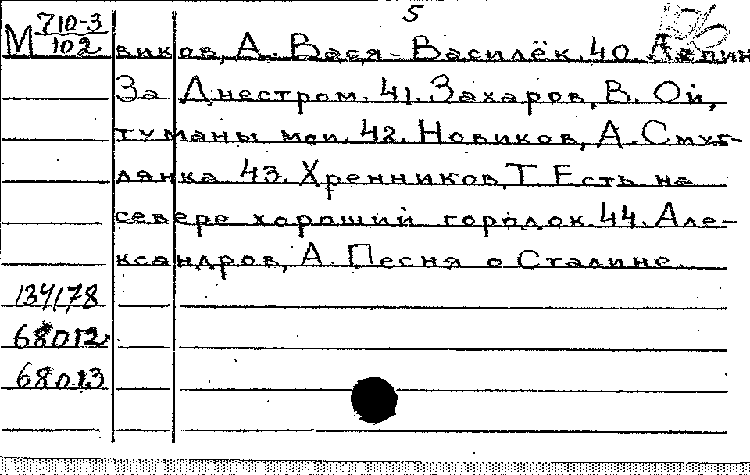 5
М 710-3
102
виков, А. Вася-Василёк. 40. Ляпин
За Днестром. 41. Захаров, В. Ой,
туманы мои. 42. Новиков, А. Смуг-
лянка 43. Хренников, Т. Есть на
севере хороший городок. 44. Але-
ксандров, А. Песня о Сталине.
134178
68012
68013